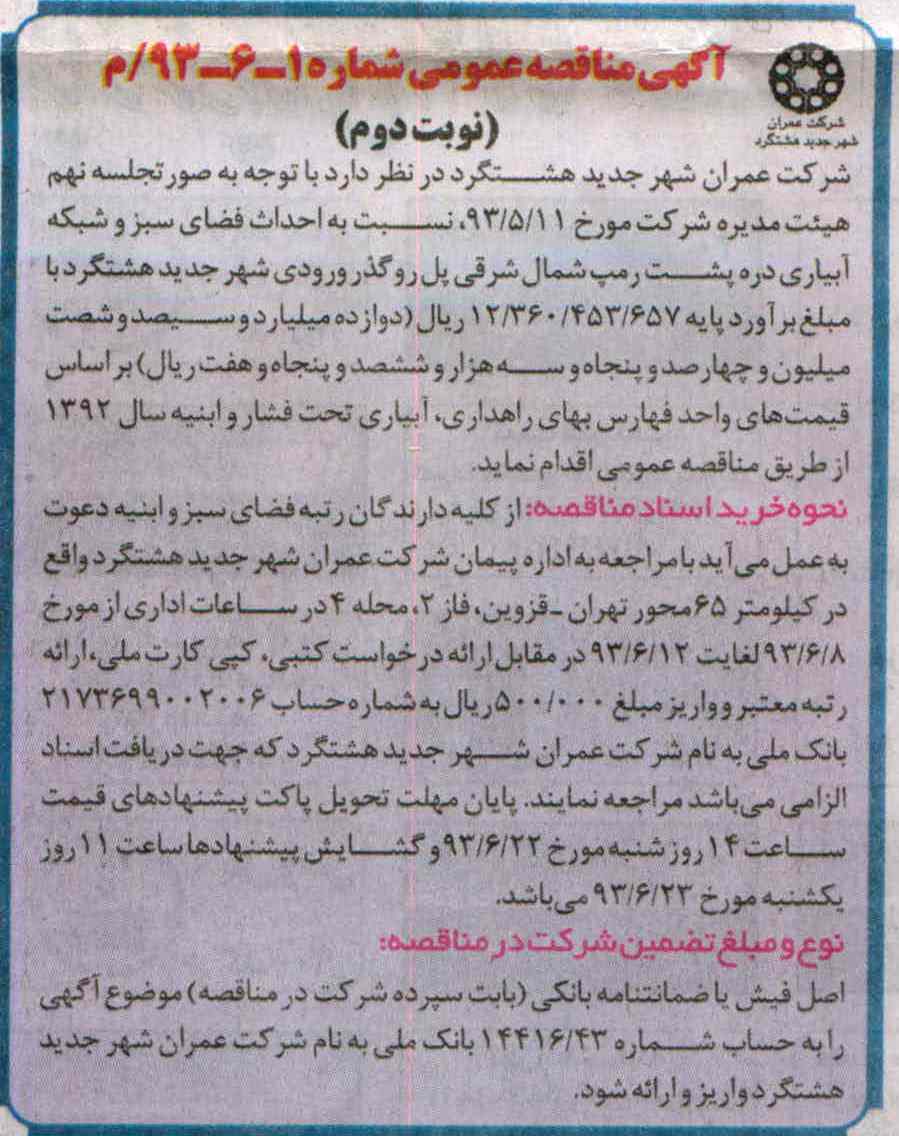 آگهی مناقصه عمومی شماره ۱ـ۶ـ۹۳/م
شرکت عمران
شهر جدید هشتگرد
(نوبت دوم)
شرکت عمران شهر جدید هشتگرد در نظر دارد با توجه به صورتجلسه نهم
هیئت مدیره شرکت مورخ ۹۳/۵/۱۱، نسبت به احداث فضای سبز و شبکه
آبیاری دره پشت رمپ شمال شرقی پل روگذر ورودی شهر جدید هشتگرد با
مبلغ برآورد پایه ۱۲/۳۶۰/۴۵۳/۶۵۷ ریال (دوازده میلیارد و سیصد و شصت
میلیون و چهارصد و پنجاه و سه هزار و ششصد و پنجاه و هفت ریال) بر اساس
قیمت‌های واحد فهارس بهای راهداری، آبیاری تحت فشار و ابنیه سال ۱۳۹۲
از طریق مناقصه عمومی اقدام نماید.
نحوه خرید اسناد مناقصه: از کلیه دارندگان رتبه فضای سبز و ابنیه دعوت
به عمل می‌آید با مراجعه به اداره پیمان شرکت عمران شهر جدید هشتگرد واقع
در کیلومتر ۶۵ محور تهران ـ قزوین، فاز ۲، محله ۴ در ساعات اداری از مورخ
۹۳/۶/۸ لغایت ۹۳/۶/۱۲ در مقابل ارائه درخواست کتبی، کپی کارت ملی، ارائه
رتبه معتبر و واریز مبلغ ۵۰۰/۰۰۰ ریال به شماره حساب ۲۱۷۳۶۹۹۰۰۲۰۰۶
بانک ملی به نام شرکت عمران شهر جدید هشتگرد که جهت دریافت اسناد
الزامی می‌باشد مراجعه نمایند. پایان مهلت تحویل پاکت پیشنهادهای قیمت
ساعت ۱۴ روز شنبه مورخ ۹۳/۶/۲۲ و گشایش پیشنهادها ساعت ۱۱ روز
یکشنبه مورخ ۹۳/۶/۲۳ می‌باشد.
نوع و مبلغ تضمین شرکت در مناقصه:
اصل فیش یا ضمانتنامه بانکی (بابت سپرده شرکت در مناقصه) موضوع آگهی
را به حساب شماره ۱۴۴۱۶/۴۳ بانک ملی به نام شرکت عمران شهر جدید
هشتگرد واریز و ارائه شود.